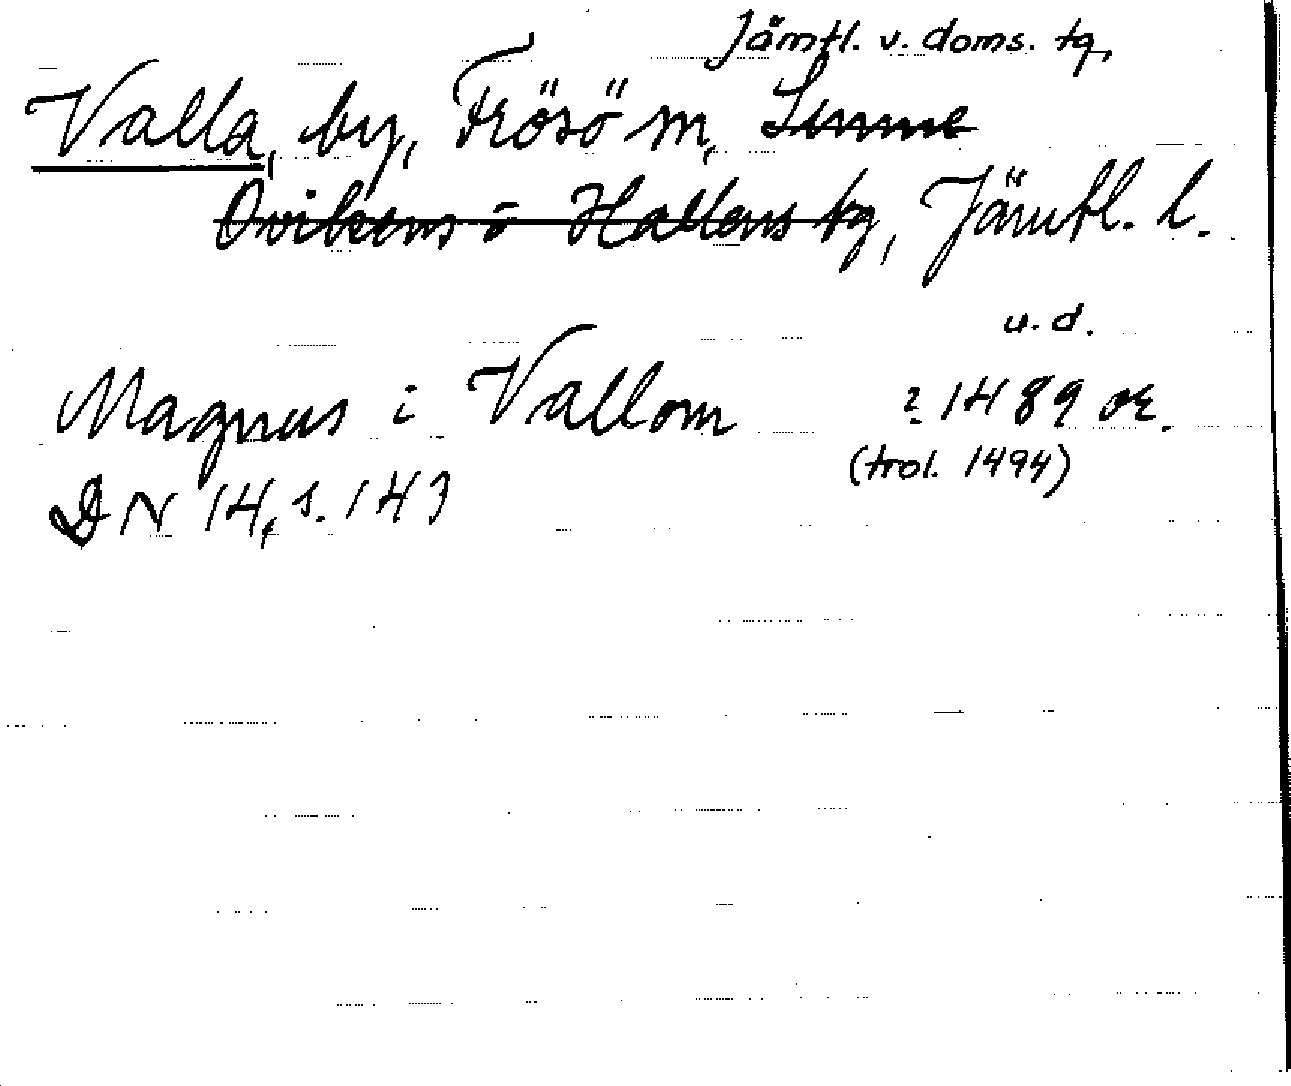 Jämtl. v. doms. tg,
Valla, by, Frösö sn, Sunne
Ovikens o Hallens tg, Jämtl. l.
u. d.
Magnus i Vallom ? 1489 or.
(trol. 1494)
DN 14, s. 143